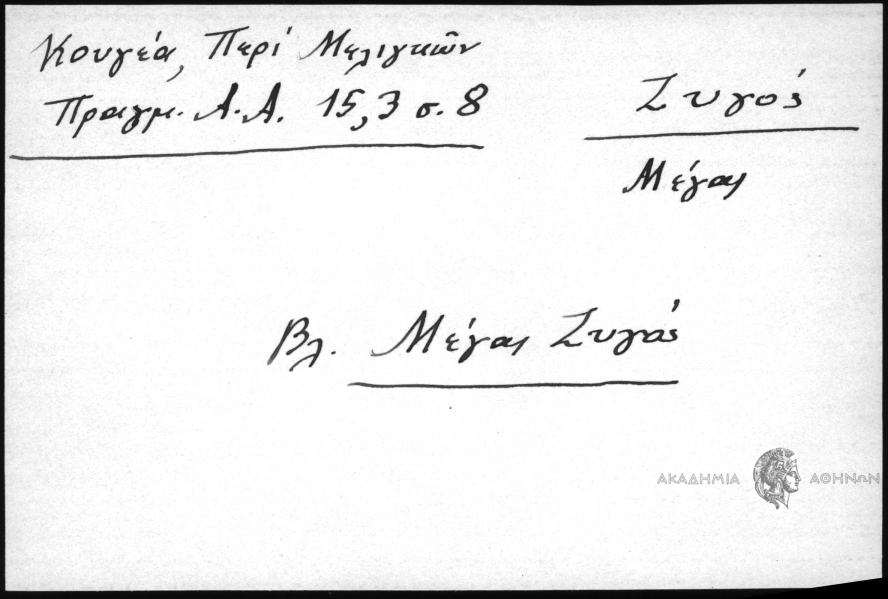 Κουγέα, Περί Μελιγκῶν
Πραγμ. Α.Α. 15,3 σ. 8
Ζυγός
Μέγας
Βλ. Μέγας Ζυγός
ΑΚΑΔΗΜΙΑ ΑΘΗΝΩΝ